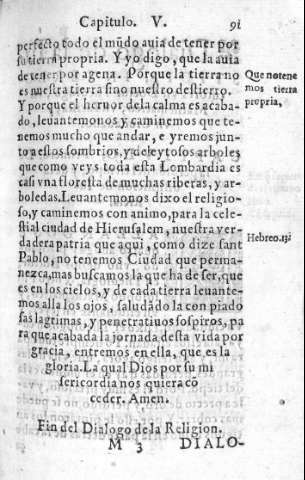 Capitulo. V. 91
perfecto todo el mũdo auia de tener por
su tierra propria. Y yo digo, que la auia
de tener por agena. Porque la tierra no
es nuestra tierra sino nuestro destierro.
Y porque el heruor de la calma es acaba-
do, leuantemonos y caminemos que te-
nemos mucho que andar, e yremos jun-
to a estos sombrios, y deleytosos arboles
que como veys toda esta Lombardia es
casi vna floresta de muchas riberas, y ar-
boledas. Leuantemonos dixo el religio-
so, y caminemos con animo, para la cele-
stial ciudad de Hierusalem, nuestra ver-
dadera patria que aqui, como dize sant
Pablo, no tenemos Ciudad que perma-
nezca, mas buscamos la que ha de ser, que
es en los cielos, y de cada tierra leuante-
mos alla los ojos, saludãdo la con piado
sas lagrimas, y penetratiuos sospiros, pa
ra que acabada la jornada desta vida por
gracia, entremos en ella, que es la
gloria. La qual Dios por su mi
sericordia nos quiera cõ
ceder. Amen.
Fin del Dialogo de la Religion.
M 3 DIALO-
Que no tene
mos tierra
propria,
Hebreo. 13